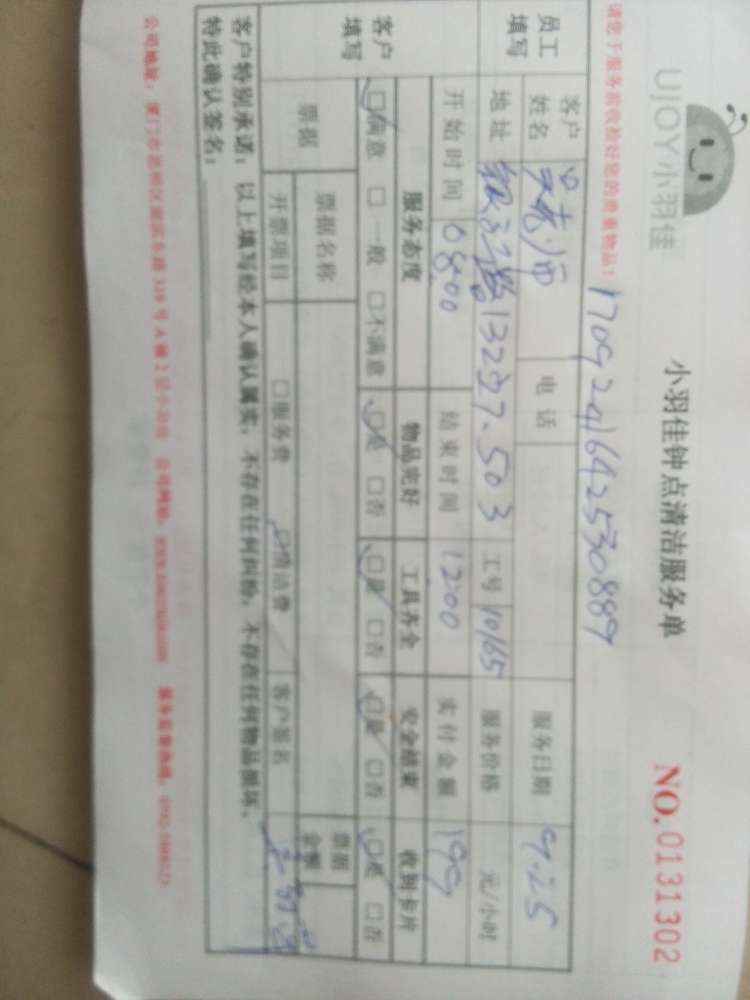 UJOY小羽佳
小羽佳钟点清洁服务单
NO.0131302
请您于服务前收捡好您的贵重物品!
1709291642530889
员工填写
客户姓名
电话
服务日期 9.25
地址 132之7.503
工号 10165
服务价格 元/小时
开始时间 0800
结束时间 1200
实付金额 199
客户填写
服务态度 物品完好 工具齐全 安全结束 收到卡片
□满意 □一般 □不满意 □是 □否 □是 □否 □是 □否 □是 □否
票据
票据名称
票据金额
开票项目 □服务费 □清洁费 客户签名
客户特别承诺: 以上填写经本人确认属实, 不存在任何纠纷, 不存在任何物品损坏。
特此确认签名:
公司地址: 厦门市思明区 339号A幢2层小羽佳 公司网站: 服务监督热线: